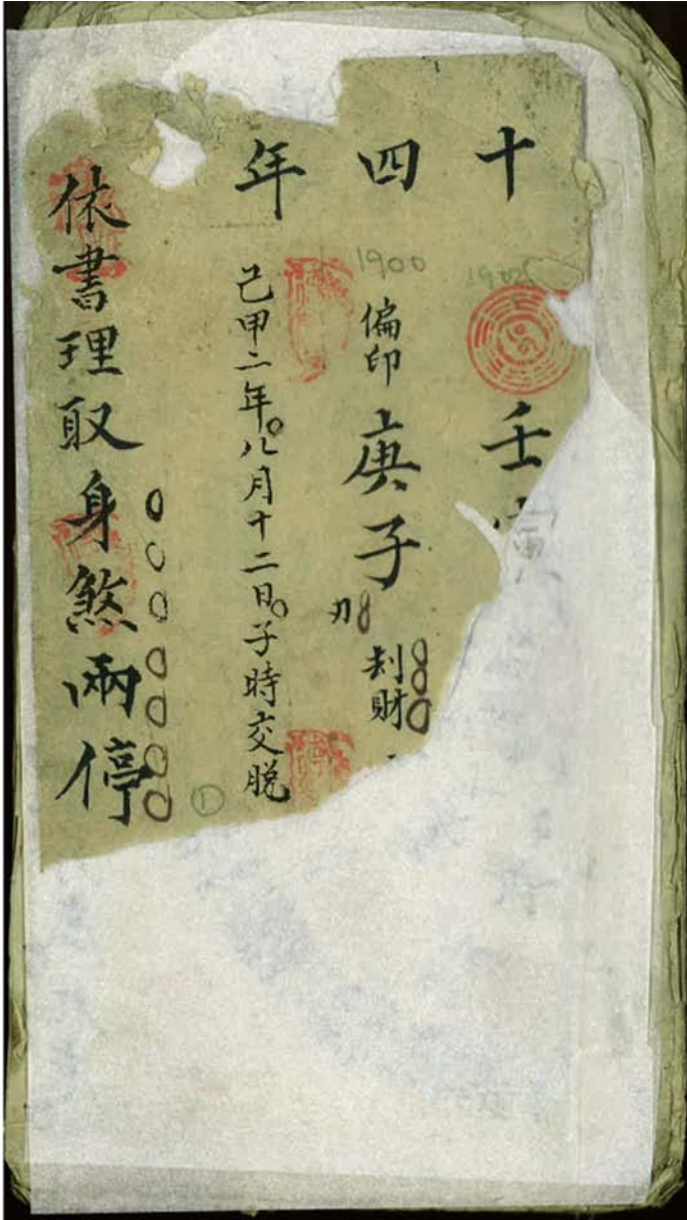 十四年
1902
壬寅
1900
偏印 庚子 刃 刦財
己甲二年。八月十二日。子時交脱
①
依書理取身煞兩停